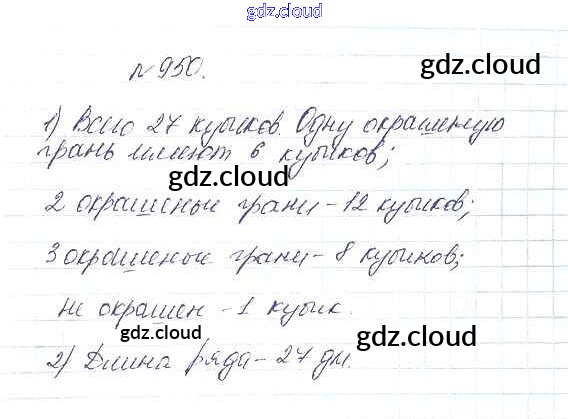 gdz.cloud
gdz.cloud
№950.
gdz.cloud
1) Всего 27 кубиков. Одну окрашеную
грань имеют 6 кубиков;
gdz.cloud
2 окрашеные грани - 12 кубиков;
3 окрашеные грани - 8 кубиков;
не окрашен - 1 кубик.
gdz.cloud
gdz.cloud
2) Длина ряда - 27 дм.